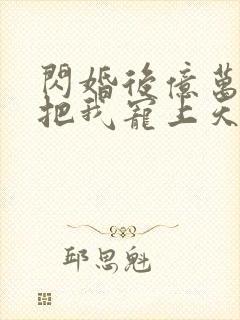 閃婚後億萬
把我寵上天
邱思魁